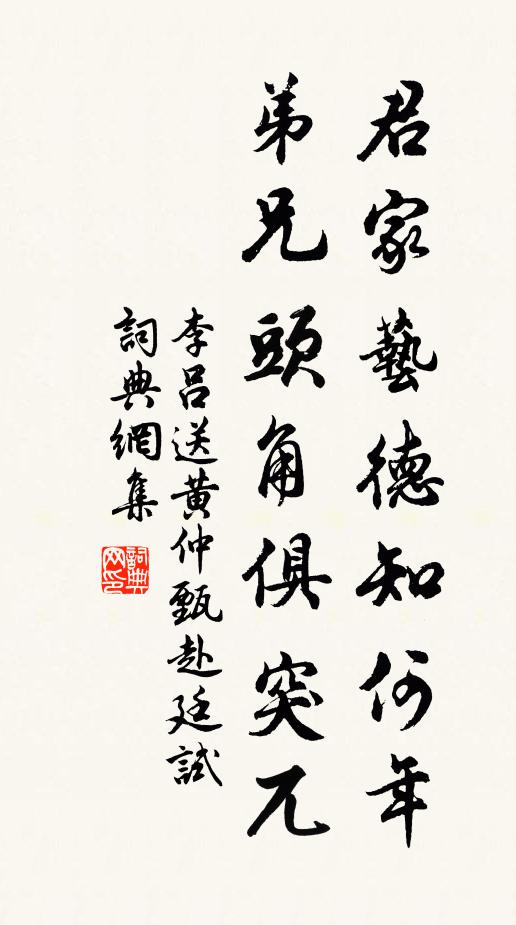 君家藝德知何年
弟兄頭角俱突兀
李呂送黃仲甄赴廷試
詞典網集
詞典網印